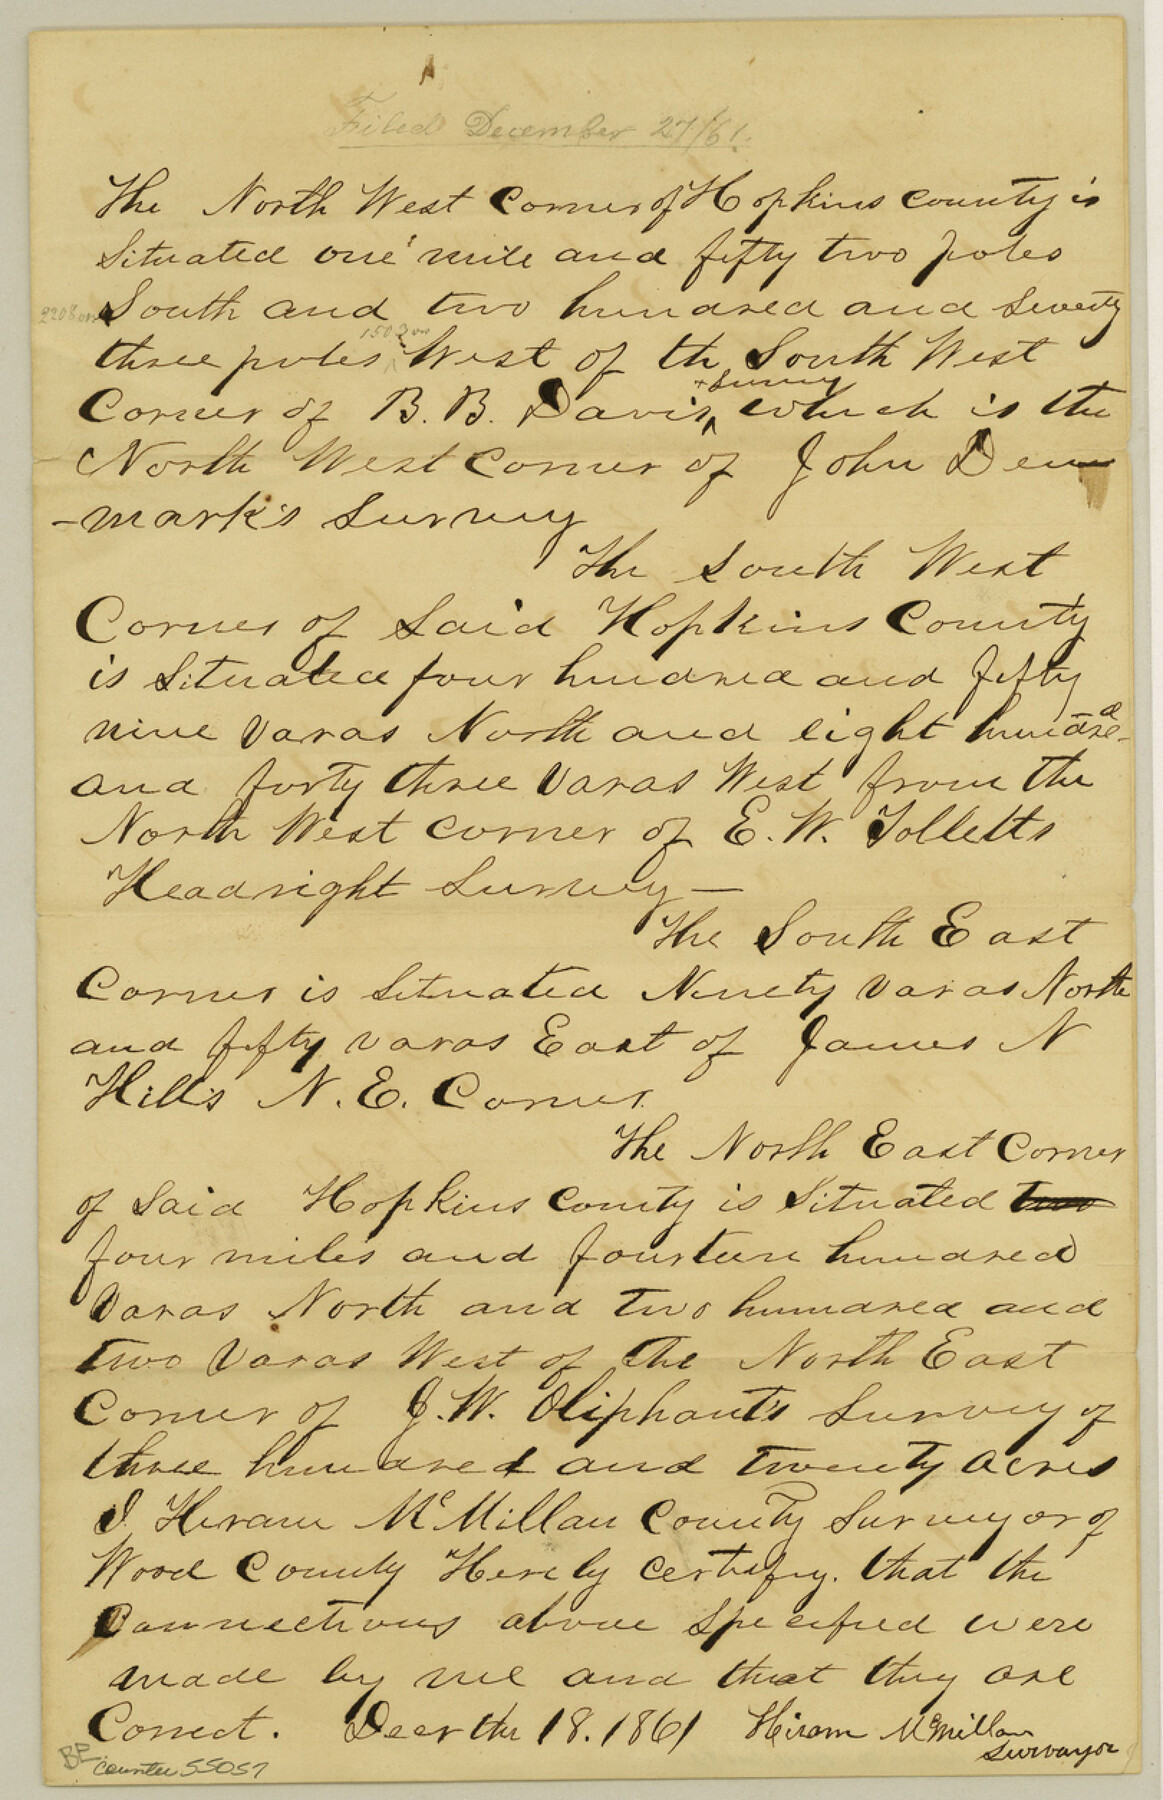 Filed December 27/61.
The North West Corner of Hopkins County is
Situated one mile and fifty two poles
2208 vrs South and two hundred and Seventy
1502 vrs
three poles West of th South West
+ Survey
Corner of B. B. Davis, which is the
North West Corner of John Den
-mark's Survey
The South West
Corner of Said Hopkins County
is Situated four hundred and fifty
nine varas North and eight hundred
and forty three varas West from the
North West corner of E. W. Tolletts
Headright Survey —
The South East
Corner is Situated Ninety varas North
and fifty varas East of James N
Hill's N. E. Corner.
The North East Corner
of Said Hopkins County is Situated two
four miles and fourteen hundred
varas North and two hundred and
two varas West of the North East
Corner of J. W. Oliphant's Survey of
three hundred and twenty acres
I Hiram McMillan County Surveyor of
Wood County Hereby certify. that the
Connections above specified were
made by me and that they are
Correct. Decr the 18. 1861 Hiram McMillan
Survayor
counter 55057